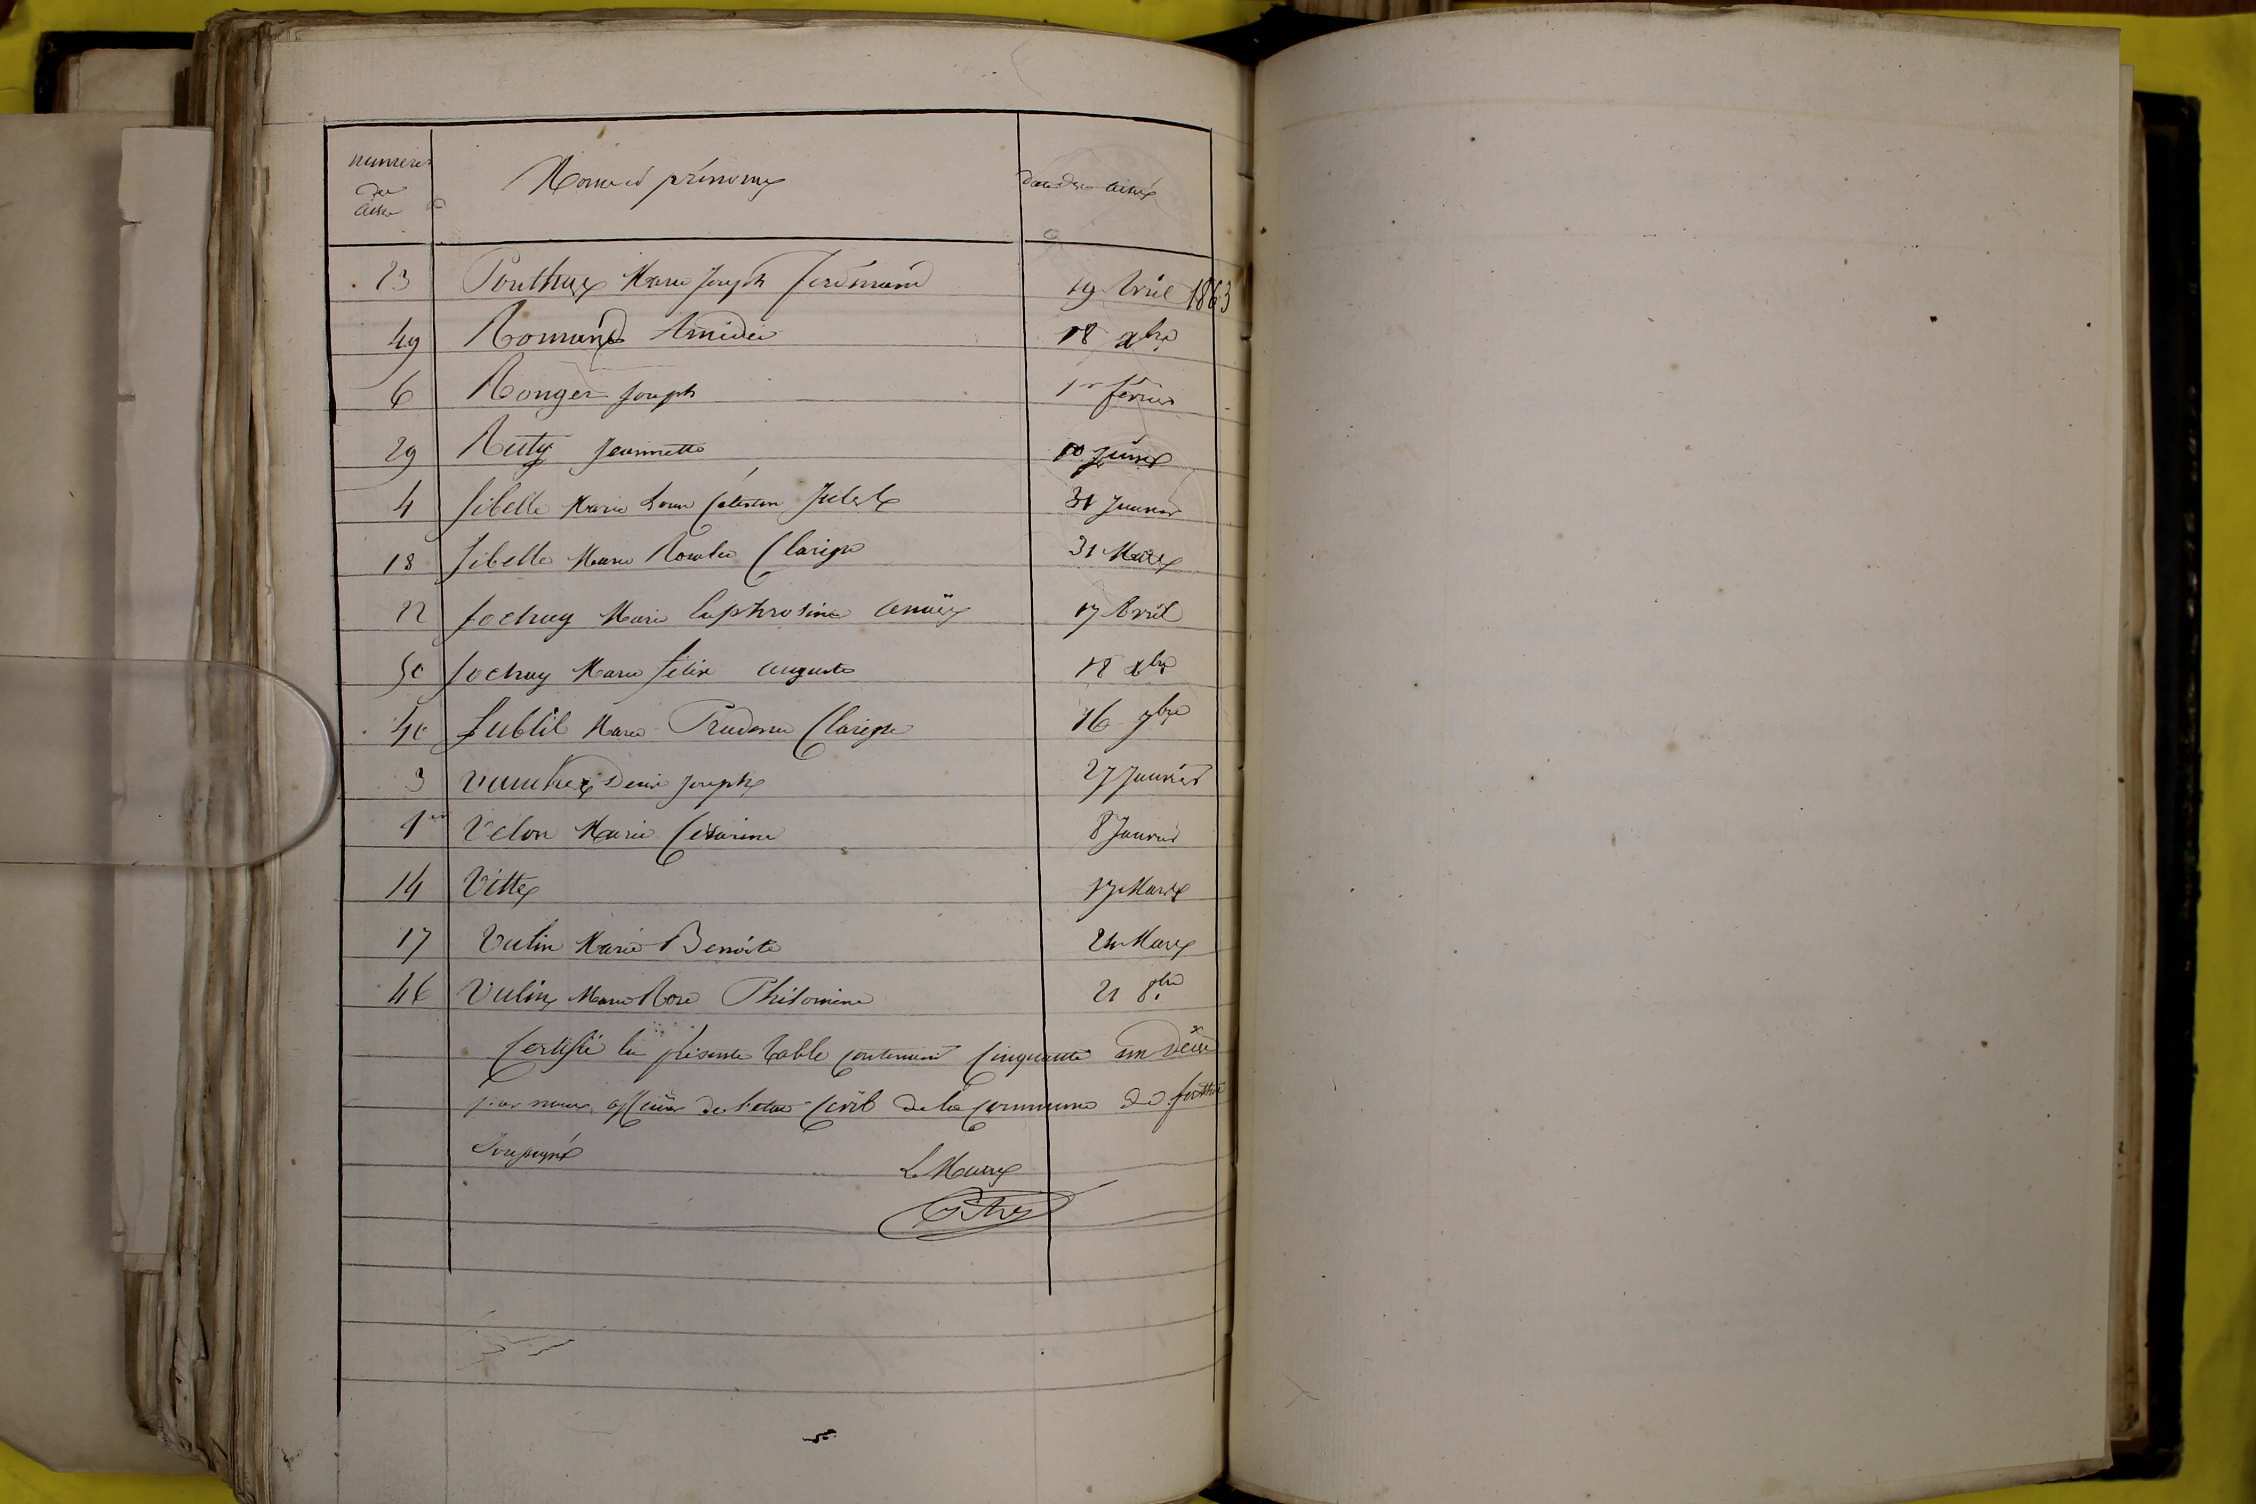 numeros des actes
Noms et prénoms
Date des actes
23 Ponthus Marie Joseph ferdinand 19 Avril 1863
49 Romand Amédée 18 Xbre
6 Ronger Joseph 1er février
29 Ruty Jeannette 10 Juin
4 Sibelle Marie Louis Célestin Jules 31 Janvier
18 Sibelle Marie Rosalie Clarisse 31 Mars
22 Sochay Marie Euphrosine Anaïs 17 Avril
50 Sochay Marie félix auguste 18 Xbre
40 Subtil Marie Prudence Clarisse 16 7bre
3 Denis Joseph 27 Janvier
1er Velon Marie Césarine 8 Janvier
14 Vittes 17 Mars
17 Vulin Marie Benoite 24 Mars
46 Vulin Marie Rose Philomène 21 8bre
Certifié la présente table contenant Cinquante un décès
par nous officier de l'etat Civil de la Commune de
Soussigné
Le Maire